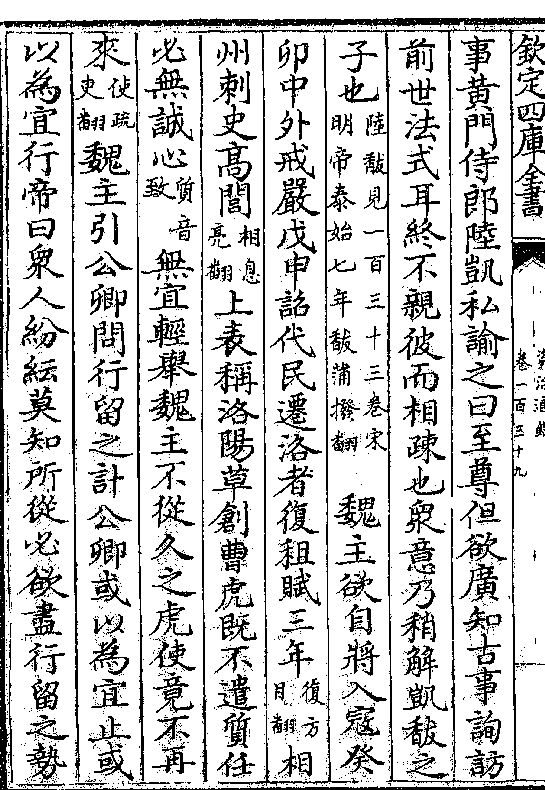 欽定四庫全書
資治通鑑
卷一百三十九
事黄門侍郎陸凱私諭之曰至尊但欲廣知古事詢訪
前世法式耳終不親彼而相疎也衆意乃稍解凱馛之
子也陸馛見一百三十三卷宋明帝泰始七年馛蒲撥翻 魏主欲自將入寇癸
卯中外戒嚴戊申詔代民遷洛者復租賦三年復方目翻相
州刺史高閭相息亮翻上表稱洛陽草創曹虎既不遣質任
必無誠心質音致無宜輕舉魏主不從久之虎使竟不再
來使疏吏翻魏主引公卿問行留之計公卿或以為宜止或
以為宜行帝曰衆人紛紜莫知所從必欲盡行留之勢